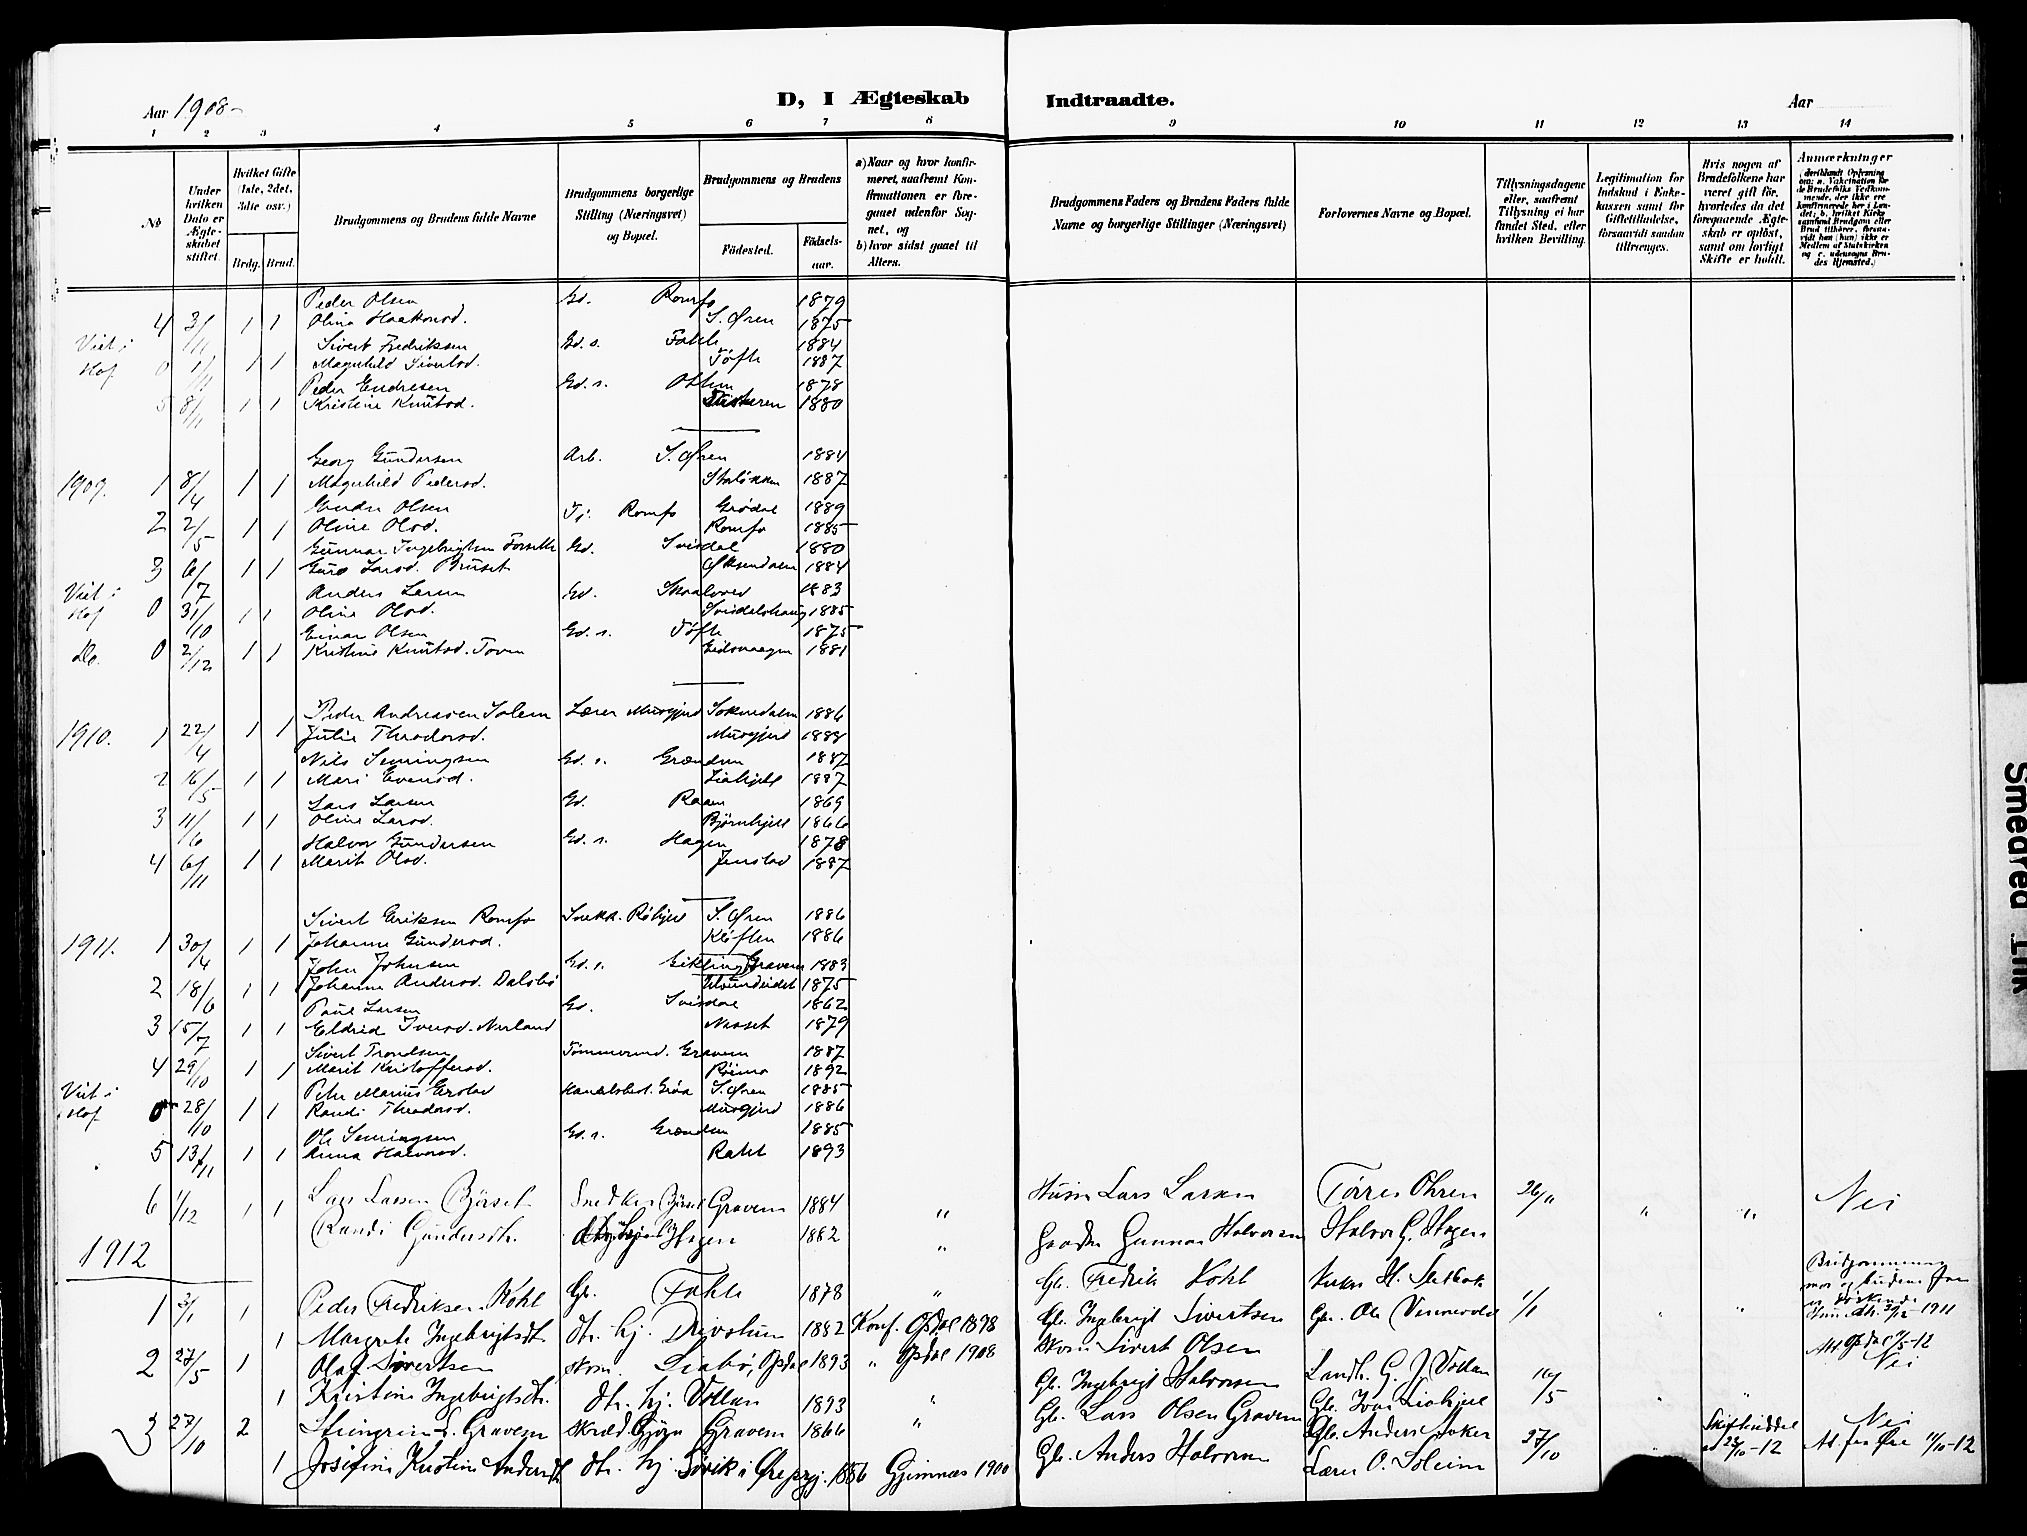 Aar 1908-
D, I Ægteskab Indtraadte.
Aar
1 2 3 4 5 6 7 8 9 10 11 12 13 14
No
Under hvilken Dato er Ægteskabet stiftet.
Hvilket Gifte (1ste, 2det, 3die osv.)
Brdg. Brud.
Brudgommens og Brudens fulde Navne
Brudgommens borgerlige Stilling (Næringsvei) og Bopæl.
Brudgommens og Brudens
Födested. Födsels-aar.
a) Naar og hvor konfirmeret, saafremt Konfirmationen er foregaaet udenfor Sognet, og
b) hvor sidst gaaet til Alters.
Brudgommens Faders og Brudens Faders fulde Navne og borgerlige Stillinger (Næringsvei)
Forlovernes Navne og Bopæl.
Tillysningsdagene eller, saafremt Tillysning ei har fundet Sted, efter hvilken Bevilling.
Legitimation for Indskud i Enkekassen samt for Giftetilladelse, forsaavidt saadan tiltrænges.
Hvis nogen af Brudefolkene har været gift för, hvorledes da det foregaaende Ægteskab er oplöst, samt om lovligt Skifte er holdt.
Anmærkninger
Peder Olsen Gd. Romfo 1879
4 3/11 1 1 Olina Haakonsd. S. Øren 1875
Viet i Sivert Fredriksen Gd. s. Fahle 1884
Hof 0 1/11 1 1 Magnhild Sivertsd. Tøfte 1887
Peder Endresen Gd. s. Ottem 1878
5 8/11 1 1 Kristine Knutsd. 1880
Georg Gundersen Arb. S. Øren 1884
1909. 1 8/4 1 1 Magnhild Pedersd. Storløkken 1887
Endre Olsen Tj. Romfo Grødal 1889
2 2/5 1 1 Oline Olsd. Romfo 1885
Gunnar Ingebrigtsen Forseth Gd. Svisdal 1880
3 6/7 1 1 Guro Larsd. Bruset Øksendalen 1884
Viet i Anders Larsen Gd. Skaalvold 1883
Hof 0 31/10 1 1 Olina Olsd. Svisdalshaug 1885
Einar Olsen Gd. s. Tøfte 1875
Do. 0 2/12 1 1 Kristine Knutsd. Toven Eidsvaagen 1881
Peder Andreasen Solem Lærer Musgjerd Soknedalen 1886
1910. 1 22/4 1 1 Julie Theodorsd. Musgjerd 1888
Nils Semingsen Gd. s. Grændsen 1887
2 16/5 1 1 Mari Evensd. Liahjell 1887
Lars Larsen Gd. Raaen 1869
3 11/6 1 1 Oline Larsd. Bjørnhjell 1866
Halvor Gundersen Gd. s. Hagen 1878
4 6/11 1 1 Marit Olsd. Jenstad 1887
Sivert Eriksen Romfo Snekk. Röhjell S. Øren 1886
1911. 1 30/4 1 1 Johanne Gundersd. Kløften 1886
John Johnsen Gd. s. Gikling Gravem 1883
2 18/6 1 1 Johanne Andersd. Dalsbø 1875
Paul Larsen Gd. Svisdal 1862
3 15/7 1 1 Eldrid Iversd. Nerland Nesset 1879
Sivert Trondsen Tømmermd. Gravem 1887
4 29/10 1 1 Marit Kristoffersd. Röimo 1892
Viet i Peter Marius Erstad Handelsbest. Gröa S. Øren 1885
Hof 0 28/10 1 1 Randi Theodorsd. Musgjerd 1886
Ole Semingsen Gd. s. Grændsen 1885
5 13/11 1 1 Anna Halvorsd. 1893
6 1/12 1 1 Lars Larsen Björset Snedker Björset Gravem 1884 " Husm Lars Larsen Törres Ohren 26/11 " " Nei
Randi Gundersdtr. Hagen 1882 " Gaardm Gunnar Halvorsen Halvor G. Hagen
1912
1 3/1 1 Peder Fredriksen Hohl Gb. Fahle 1878 " Gb. Fredrik Hohl
1 Margrete Ingebrigtsdtr. dtr. hj. Drivstuen 1882 Konf. Opdal 1898 Gb. Ingebrigt Sivertsen Gb. Ole Vinnevold 1/1 " "
2 27/5 1 Olaf Sivertsen skom. Liabö, Opdal 1893 " Opdal 1908 skom Sivert Olsen Att. Opdal 7/5-12
1 Kristine Ingebrigtsdtr. dtr. hj. Vollan 1893 " Gb. Ingebrigt Halvorsen Landh. G. J. Vollan 16/5 Nei
3 27/10 2 Steingrim L. Gravem Skræd. Gravem 1866 " Gb. Lars Olsen Gravem Gb. Ivar Liahjell Nei
1 Josefine Kristine Andersdtr dtr. hj Sørvik i Ørepgj. 1886 Gjemnæs 1900 Gb. Anders Halvorsen Gb. Anders Aaker 27/10 Skifteuddel af 25/10-12 At. fra Øre 11/10-12
Lærer O. Soleim
Smeared Ink